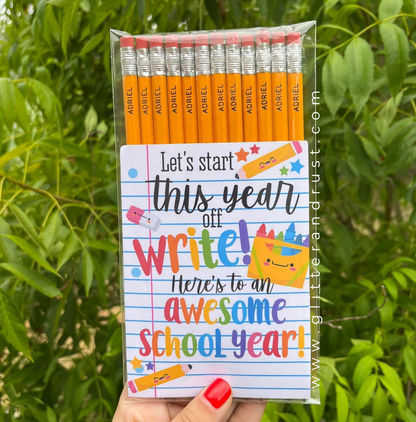 ADRIEL ADRIEL ADRIEL ADRIEL ADRIEL ADRIEL ADRIEL ADRIEL ADRIEL ADRIEL ADRIEL ADRIEL
Let's start
this year
off
write!
Here's to an
awesome
school year!
www.glitterandrust.com